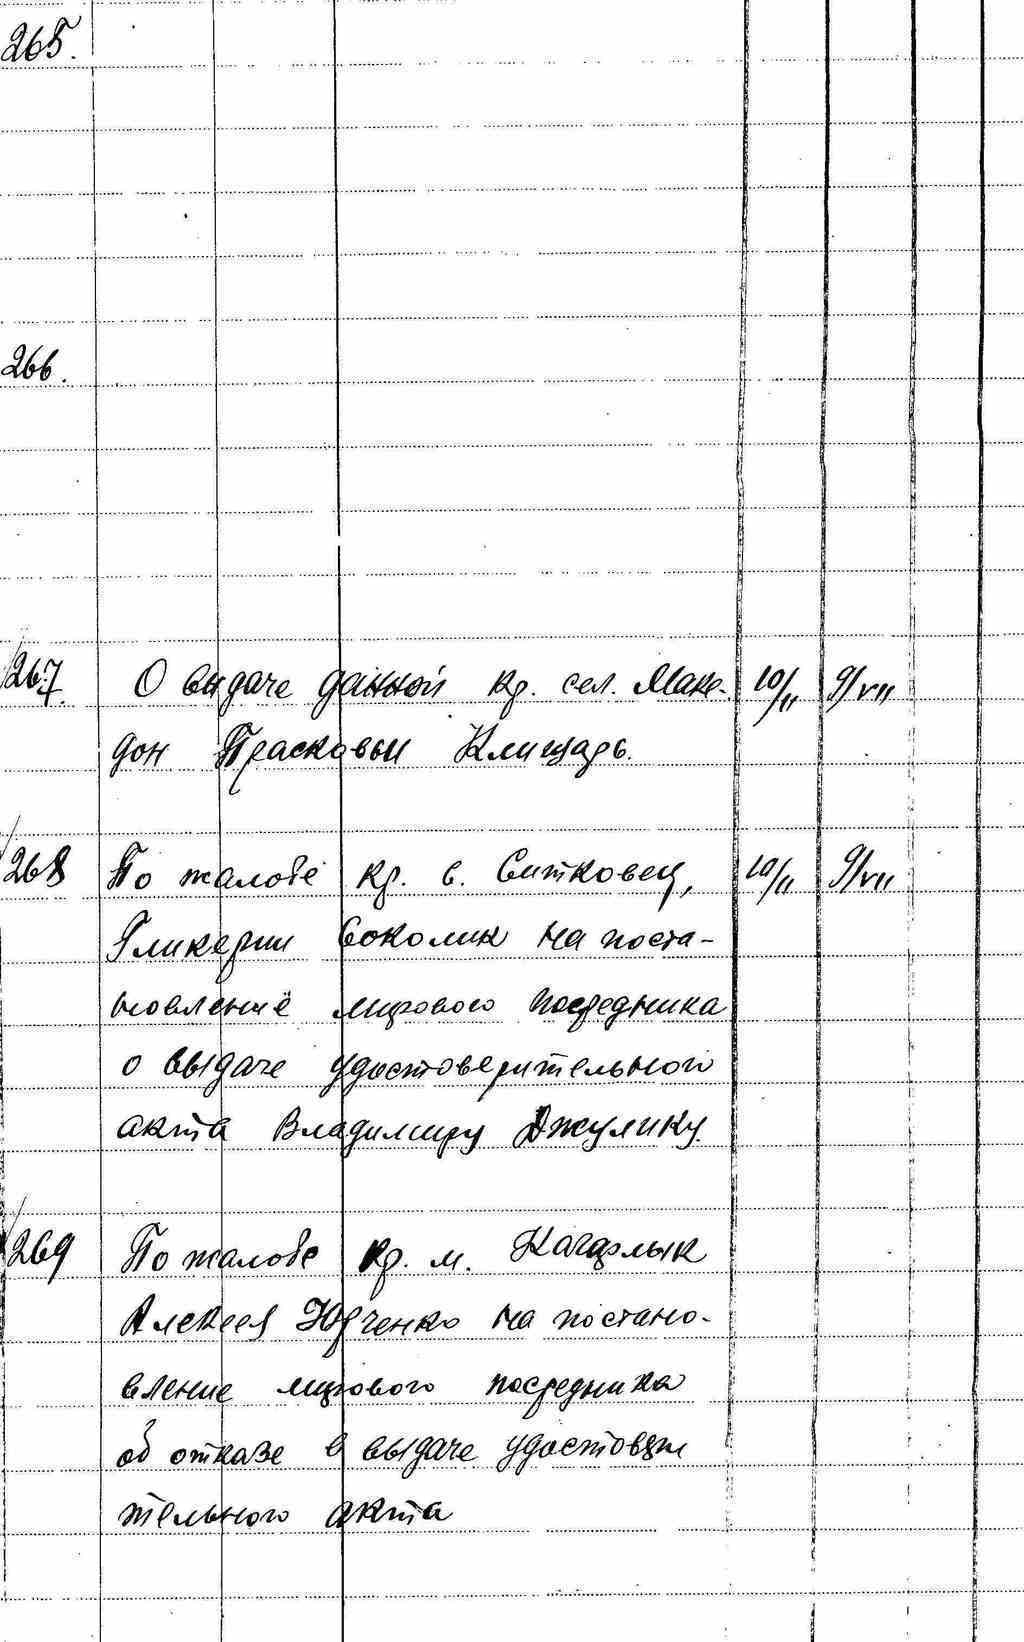 265.
266.
267. О выдаче данной кр. сел. Маке- 10/II 9/VII
дон Прасковьи Клищарь.
268 По жалобе кр. с. Ситковец, 10/II 9/VII
Гликерии Соколик на поста-
новление мирового посредника
о выдаче удостоверительного
акта Владимиру Джулику
269 По жалобе кр. м. Кагарлык
Алексея Юрченко на постано-
вление мирового посредника
об отказе в выдаче удостовери
тельного акта